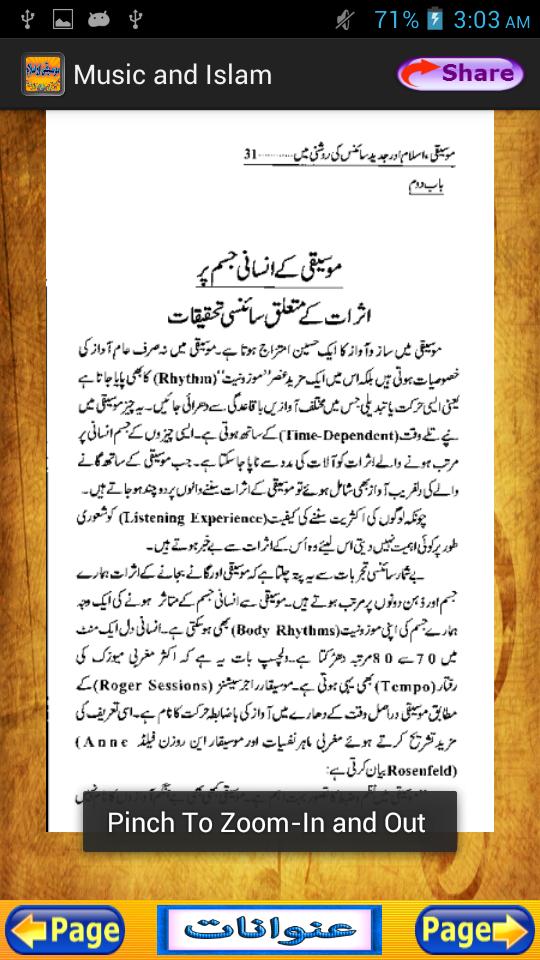 71% 3:03 AM
Music and Islam
Share
موسیقی، اسلام اور جدید سائنس کی روشنی میں ............ 31
باب دوم
موسیقی کے انسانی جسم پر
اثرات کے متعلق سائنسی تحقیقات
موسیقی میں ساز و آواز کا ایک حسین امتزاج ہوتا ہے۔ موسیقی میں نہ صرف عام آواز کی
خصوصیات ہوتی ہیں بلکہ اس میں ایک مزید عنصر ’’موزونیت‘‘ (Rhythm) کا بھی پایا جاتا ہے
یعنی ایسی حرکت یا تبدیلی جس میں مختلف آوازیں باقاعدگی سے دھرائی جائیں۔ یہ چیز موسیقی میں
نپے تلے وقت (Time-Dependent) کے ساتھ ہوتی ہے۔ ایسی چیزوں کے جسم انسانی پر
مرتب ہونے والے اثرات کو آلات کی مدد سے ناپا جا سکتا ہے۔ جب موسیقی کے ساتھ گانے
والے کی دلفریب آواز بھی شامل ہوئے تو موسیقی کے اثرات سننے والوں پر دو چند ہو جاتے ہیں۔
چونکہ لوگوں کی اکثریت سننے کی کیفیت (Listening Experience) کو شعوری
طور پر کوئی اہمیت نہیں دیتی اس لیئے وہ اُس کے اثرات سے بے خبر ہوتے ہیں۔
بے شمار سائنسی تجربات سے یہ پتہ چلتا ہے کہ موسیقی اور گانے بجانے کے اثرات ہمارے
جسم اور ذہن دونوں پر مرتب ہوتے ہیں۔ موسیقی سے انسانی جسم کے متاثر ہونے کی ایک وجہ
ہمارے جسم کی اپنی موزونیت (Body Rhythms) بھی ہو سکتی ہے۔ انسانی دل ایک منٹ
میں 70 سے 80 مرتبہ دھڑکتا ہے۔ دلچسپ بات یہ ہے کہ اکثر مغربی میوزک کی
رفتار (Tempo) بھی یہی ہوتی ہے۔ موسیقار راجر سیشنز (Roger Sessions) کے
مطابق موسیقی دراصل وقت کے دھارے میں آواز کی باضابطہ حرکت کا نام ہے۔ اسی تعریف کی
مزید تشریح کرتے ہوئے مغربی ماہر نفسیات اور موسیقار این روزن فیلڈ (Anne
Rosenfeld) بیان کرتی ہے:
Pinch To Zoom-In and Out
Page
عنوانات
Page